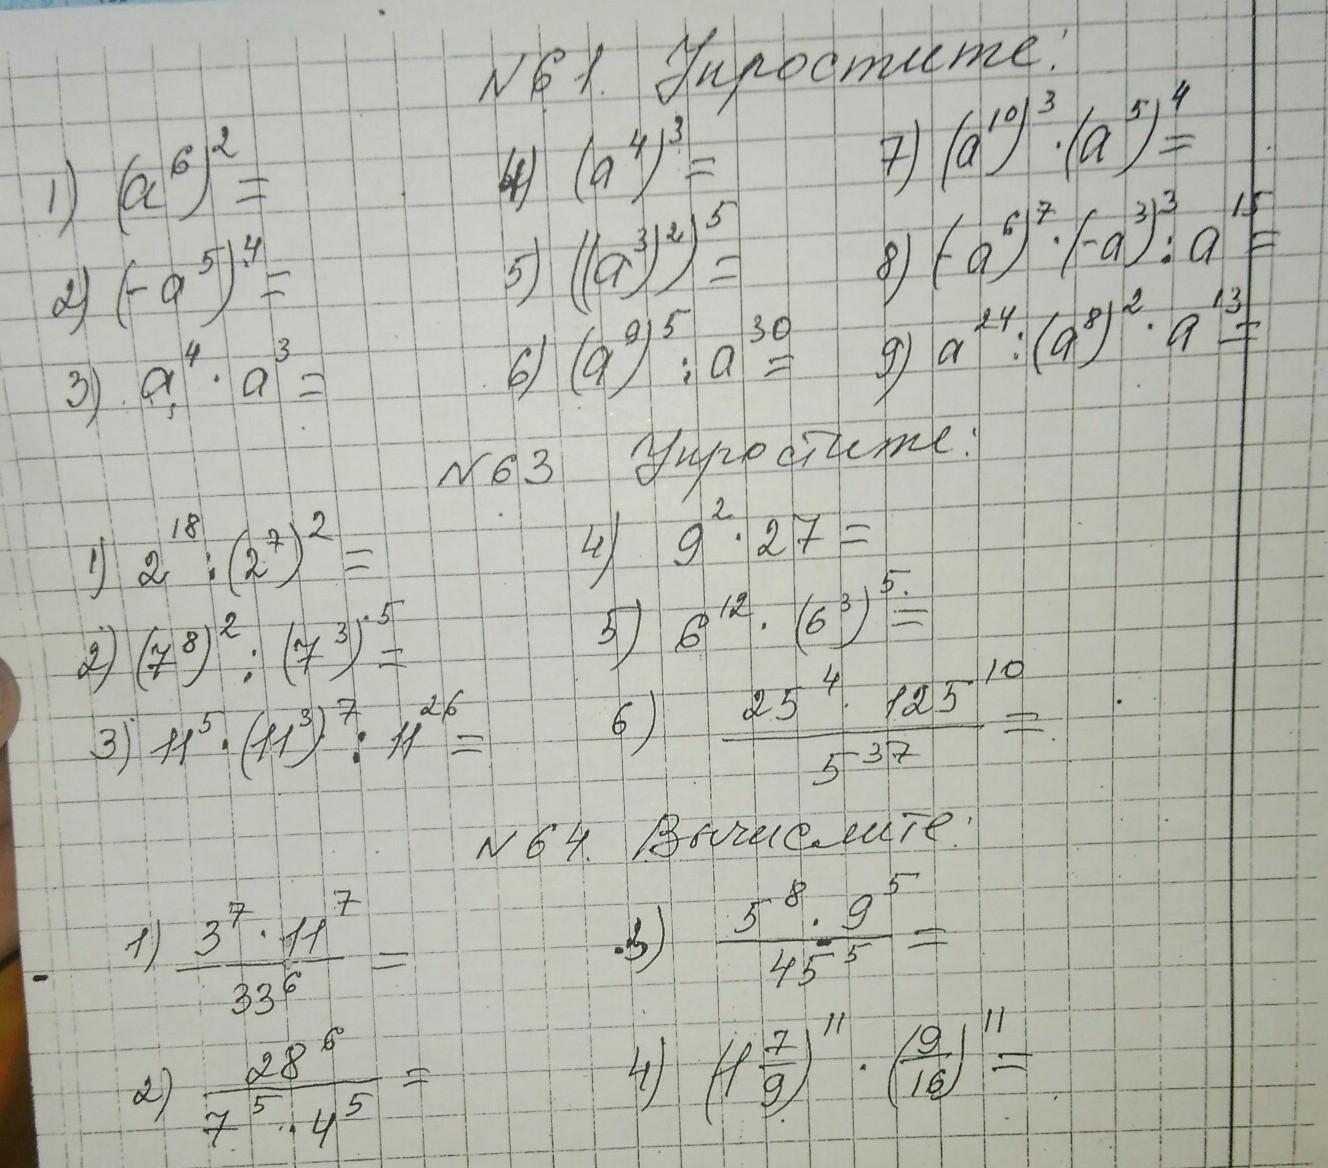 N61. Упростите:
1) (a^6)^2 =
4) (a^4)^3 =
7) (a^10)^3 · (a^5)^4 =
2) (-a^5)^4 =
5) ((a^3)^2)^5 =
8) (-a^6)^7 · (-a^3)^3 : a^15 =
3) a^4 · a^3 =
6) (a^9)^5 : a^30 =
9) a^24 : (a^8)^2 · a^13 =
N63 Упростите:
1) 2^18 : (2^7)^2 =
4) 9^2 · 27 =
2) (7^8)^2 : (7^3)^5 =
5) 6^12 · (6^3)^5 =
3) 11^5 · (11^3)^7 : 11^26 =
6) (25^4 · 125^10) / 5^37 =
N64. Вычислите:
1) (3^7 · 11^7) / 33^6 =
3) (5^8 · 9^5) / 45^5 =
2) 28^6 / (7^5 · 4^5) =
4) (1 7/9)^11 · (9/16)^11 =